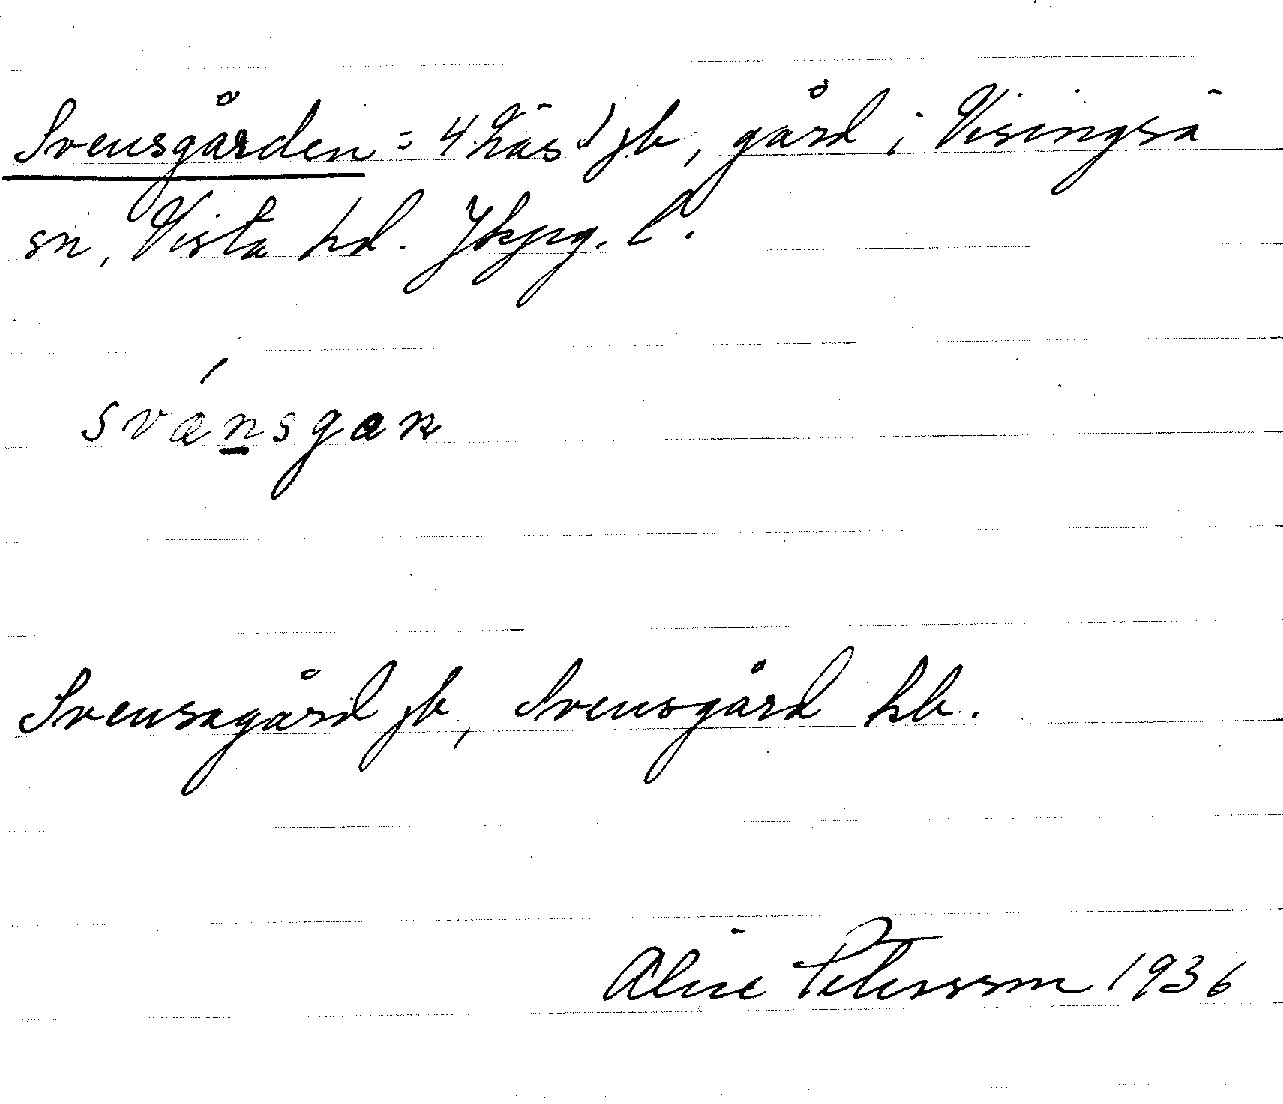 Svensgården = 4 Näs 1 jb, gård i Visingsö
sn, Vista hd. Jkpg. l.
svǽn̲sgan
Svensagård jb, Svensgård hb.
Alice Petersson 1936